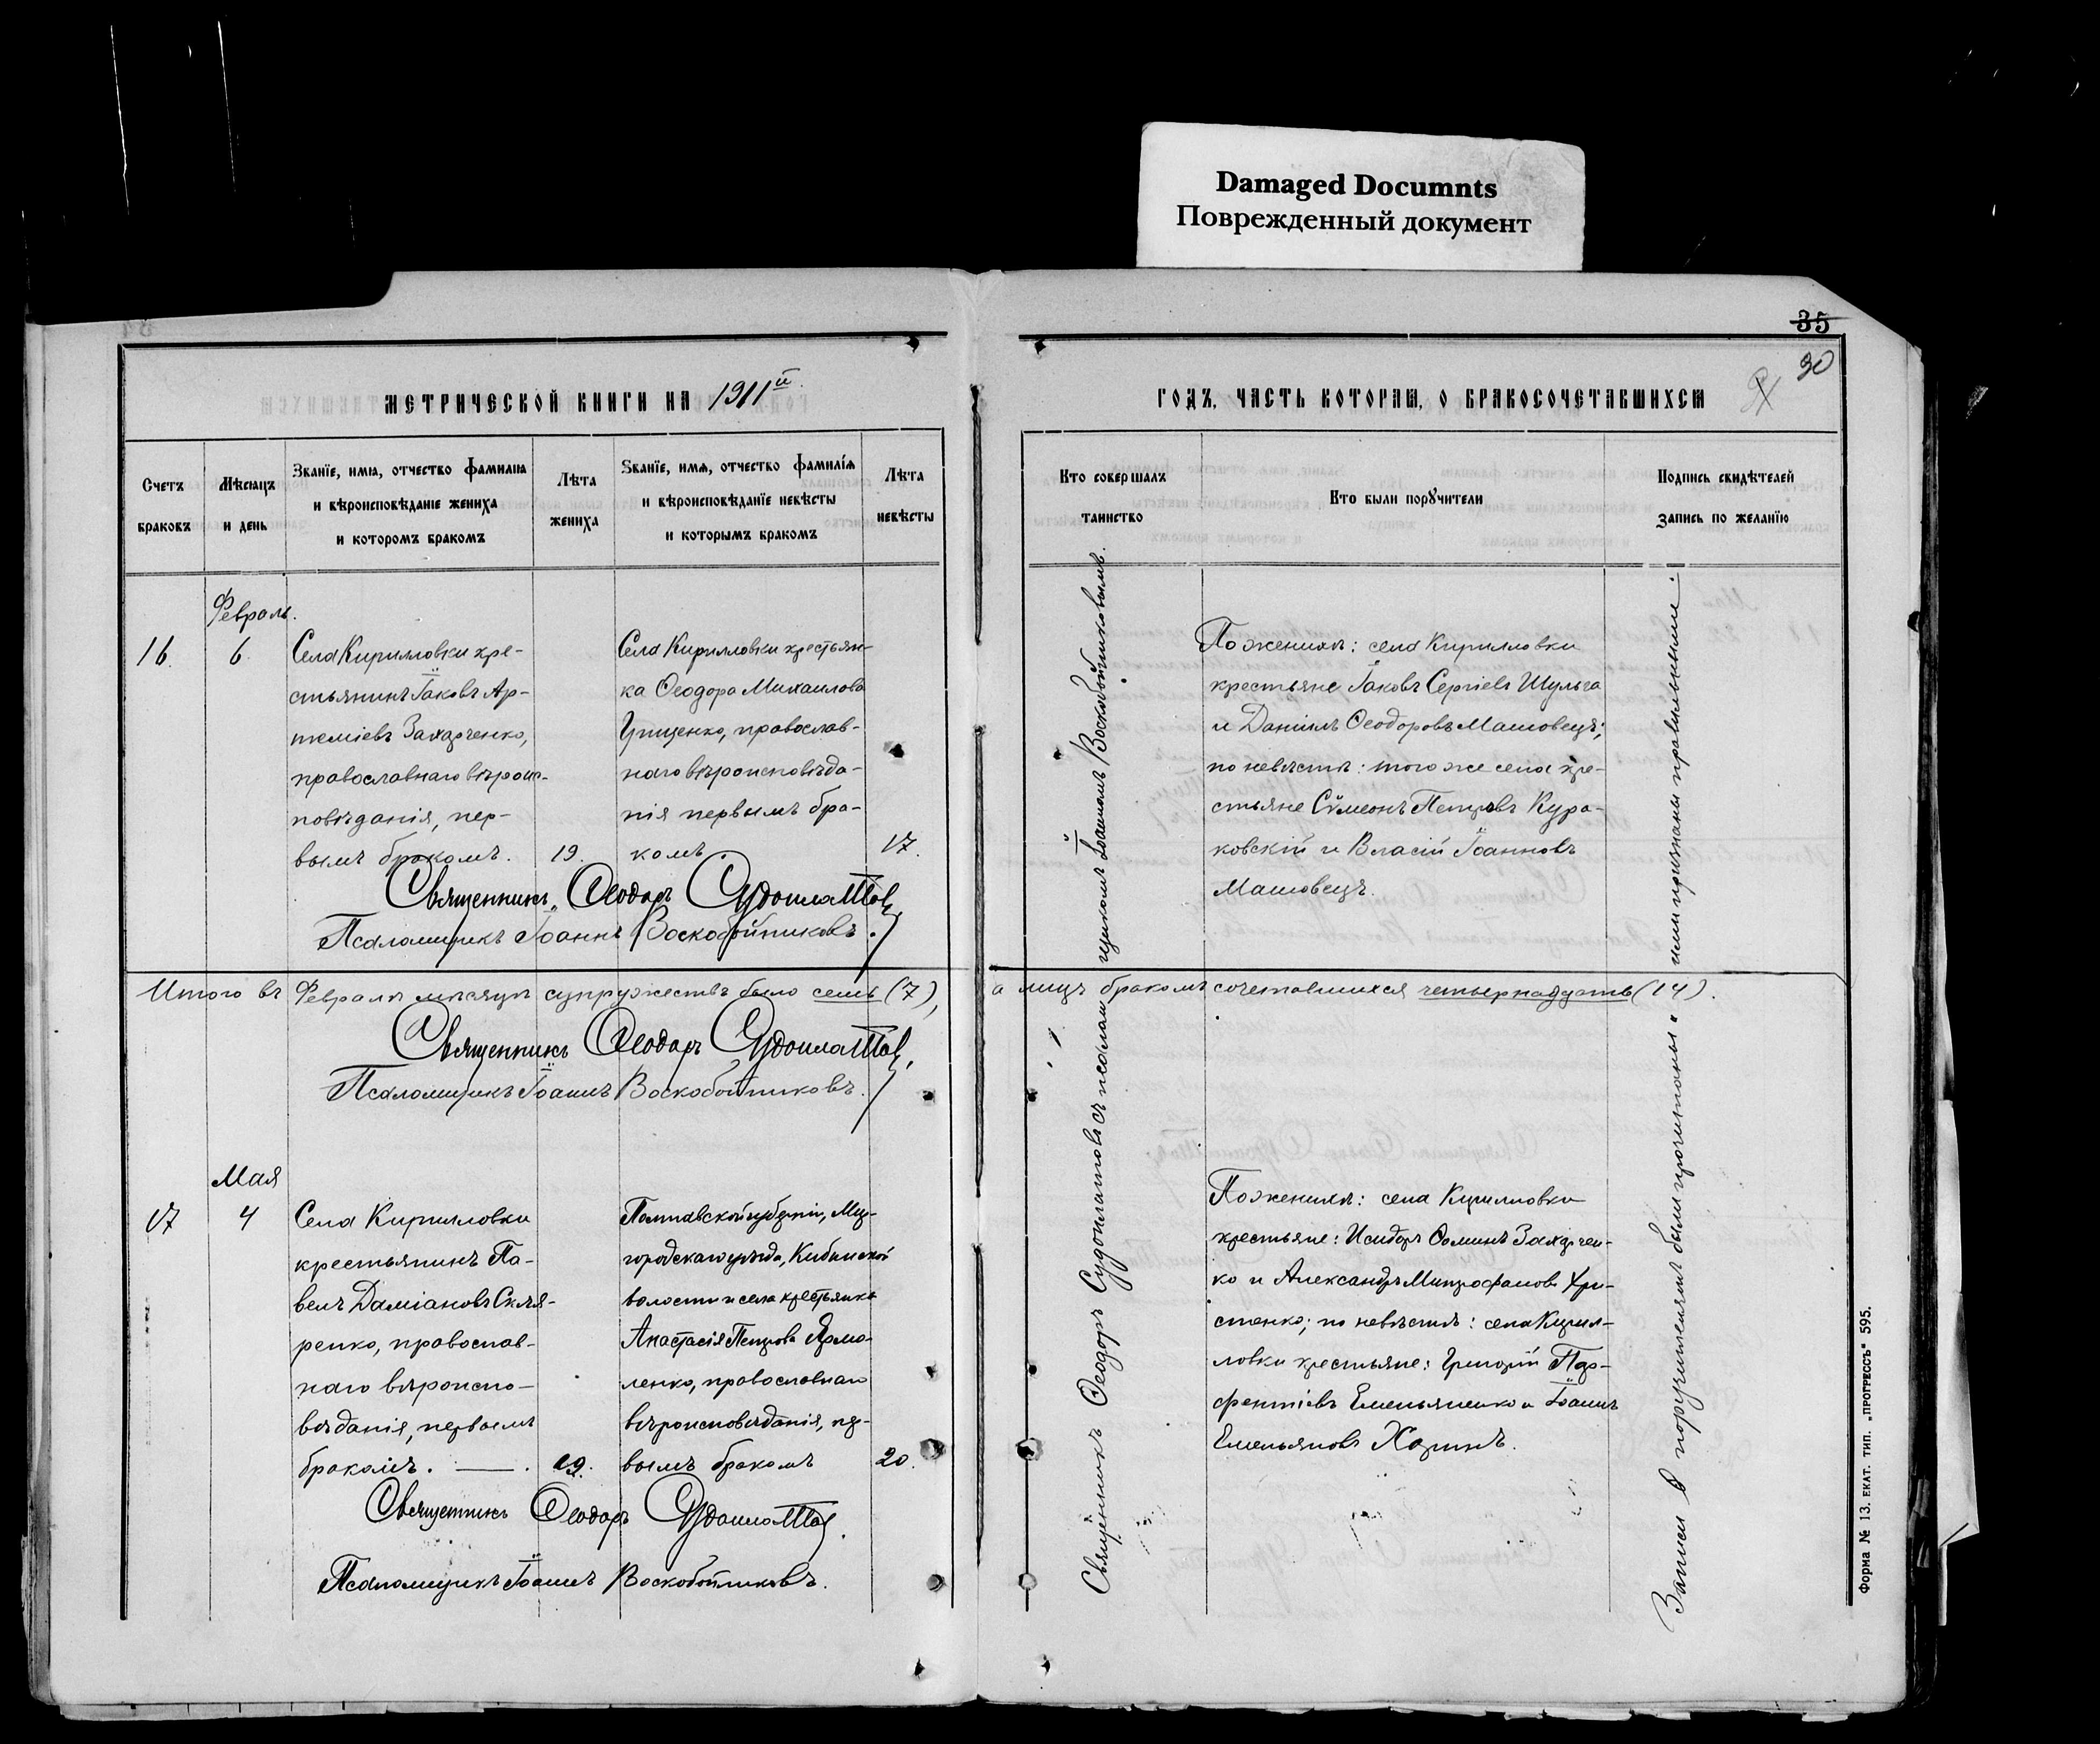 Damaged Documnts
Поврежденный документ
35
30
МЕТРИЧЕСКОЙ КНИГИ НА 1911й
ГОДЪ, ЧАСТЬ ВТОРАЯ, О БРАКОСОЧЕТАВШИХСЯ
Счетъ
браковъ
Мѣсяцъ
и день
Званїе, имя, отчество фамилїя
и вѣроисповѣданїе жениха
и которомъ бракомъ
Лѣта
жениха
Званїе, имя, отчество фамилїя
и вѣроисповѣданїе невѣсты
и которымъ бракомъ
Лѣта
невѣсты
Кто совершалъ
таинство
Кто были порꙋчители
Подпись свидѣтелей
запись по желанїю
Февраль.
16.
6.
Села Кирилловки кре-
стьянинъ Іаковъ Ар-
теміевъ Захарченко,
православнаго вѣроис-
повѣданія, пер-
вымъ бракомъ.
19.
Села Кирилловки крестьян-
ка Ѳеодора Михаилова
Грищенко, православ-
наго вѣроисповѣда-
нія первымъ бра-
комъ.
17.
Священникъ Ѳеодоръ Судоплатовъ
Псаломщикъ Іоаннъ Воскобойниковъ.
По женихѣ: села Кирилловки
крестьяне Іаковъ Сергіевъ Шульга
и Даніилъ Ѳеодоровъ Машовецъ;
по невѣстѣ: того же села кре-
стьяне Сѵмеонъ Петровъ Кура-
ковскій и Власій Іоанновъ
Машовецъ.
Итого въ Февралѣ мѣсяцѣ супружествъ было семь (7),
а лицъ бракомъ сочетавшихся четырнадцать (14).
Священникъ Ѳеодоръ Судоплатовъ
Псаломщикъ Іоаннъ Воскобойниковъ.
Мая
17
4
Села Кирилловки
крестьянинъ Па-
велъ Даміановъ Скля-
ренко, православ-
наго вѣроиспо-
вѣданія, первымъ
бракомъ.
19.
Полтавской губерніи, Мир-
городскаго уѣзда, Кибинской
волости и села крестьянка
Анастасія Петрова Ярмо-
ленко, православнаго
вѣроисповѣданія, пер-
вымъ бракомъ
20.
Священникъ Ѳеодоръ Судоплатовъ.
Псаломщикъ Іоаннъ Воскобойниковъ.
По женихѣ: села Кирилловки
крестьяне: Исидоръ Ѳоминъ Захарчен-
ко и Александръ Митрофановъ Хри-
стенко; по невѣстѣ: села Кирил-
ловки крестьяне: Григорій Пар-
фентіевъ Емельяненко и Іоаннъ
Емельяновъ Харинъ.
Священникъ Ѳеодоръ Судоплатовъ съ псаломщикомъ Іоанномъ Воскобойниковымъ.
Записи поручителямъ были прочитаны и ими признаны правильными.
Форма № 13. ЕКАТ. ТИП. „ПРОГРЕССЪ" 595.